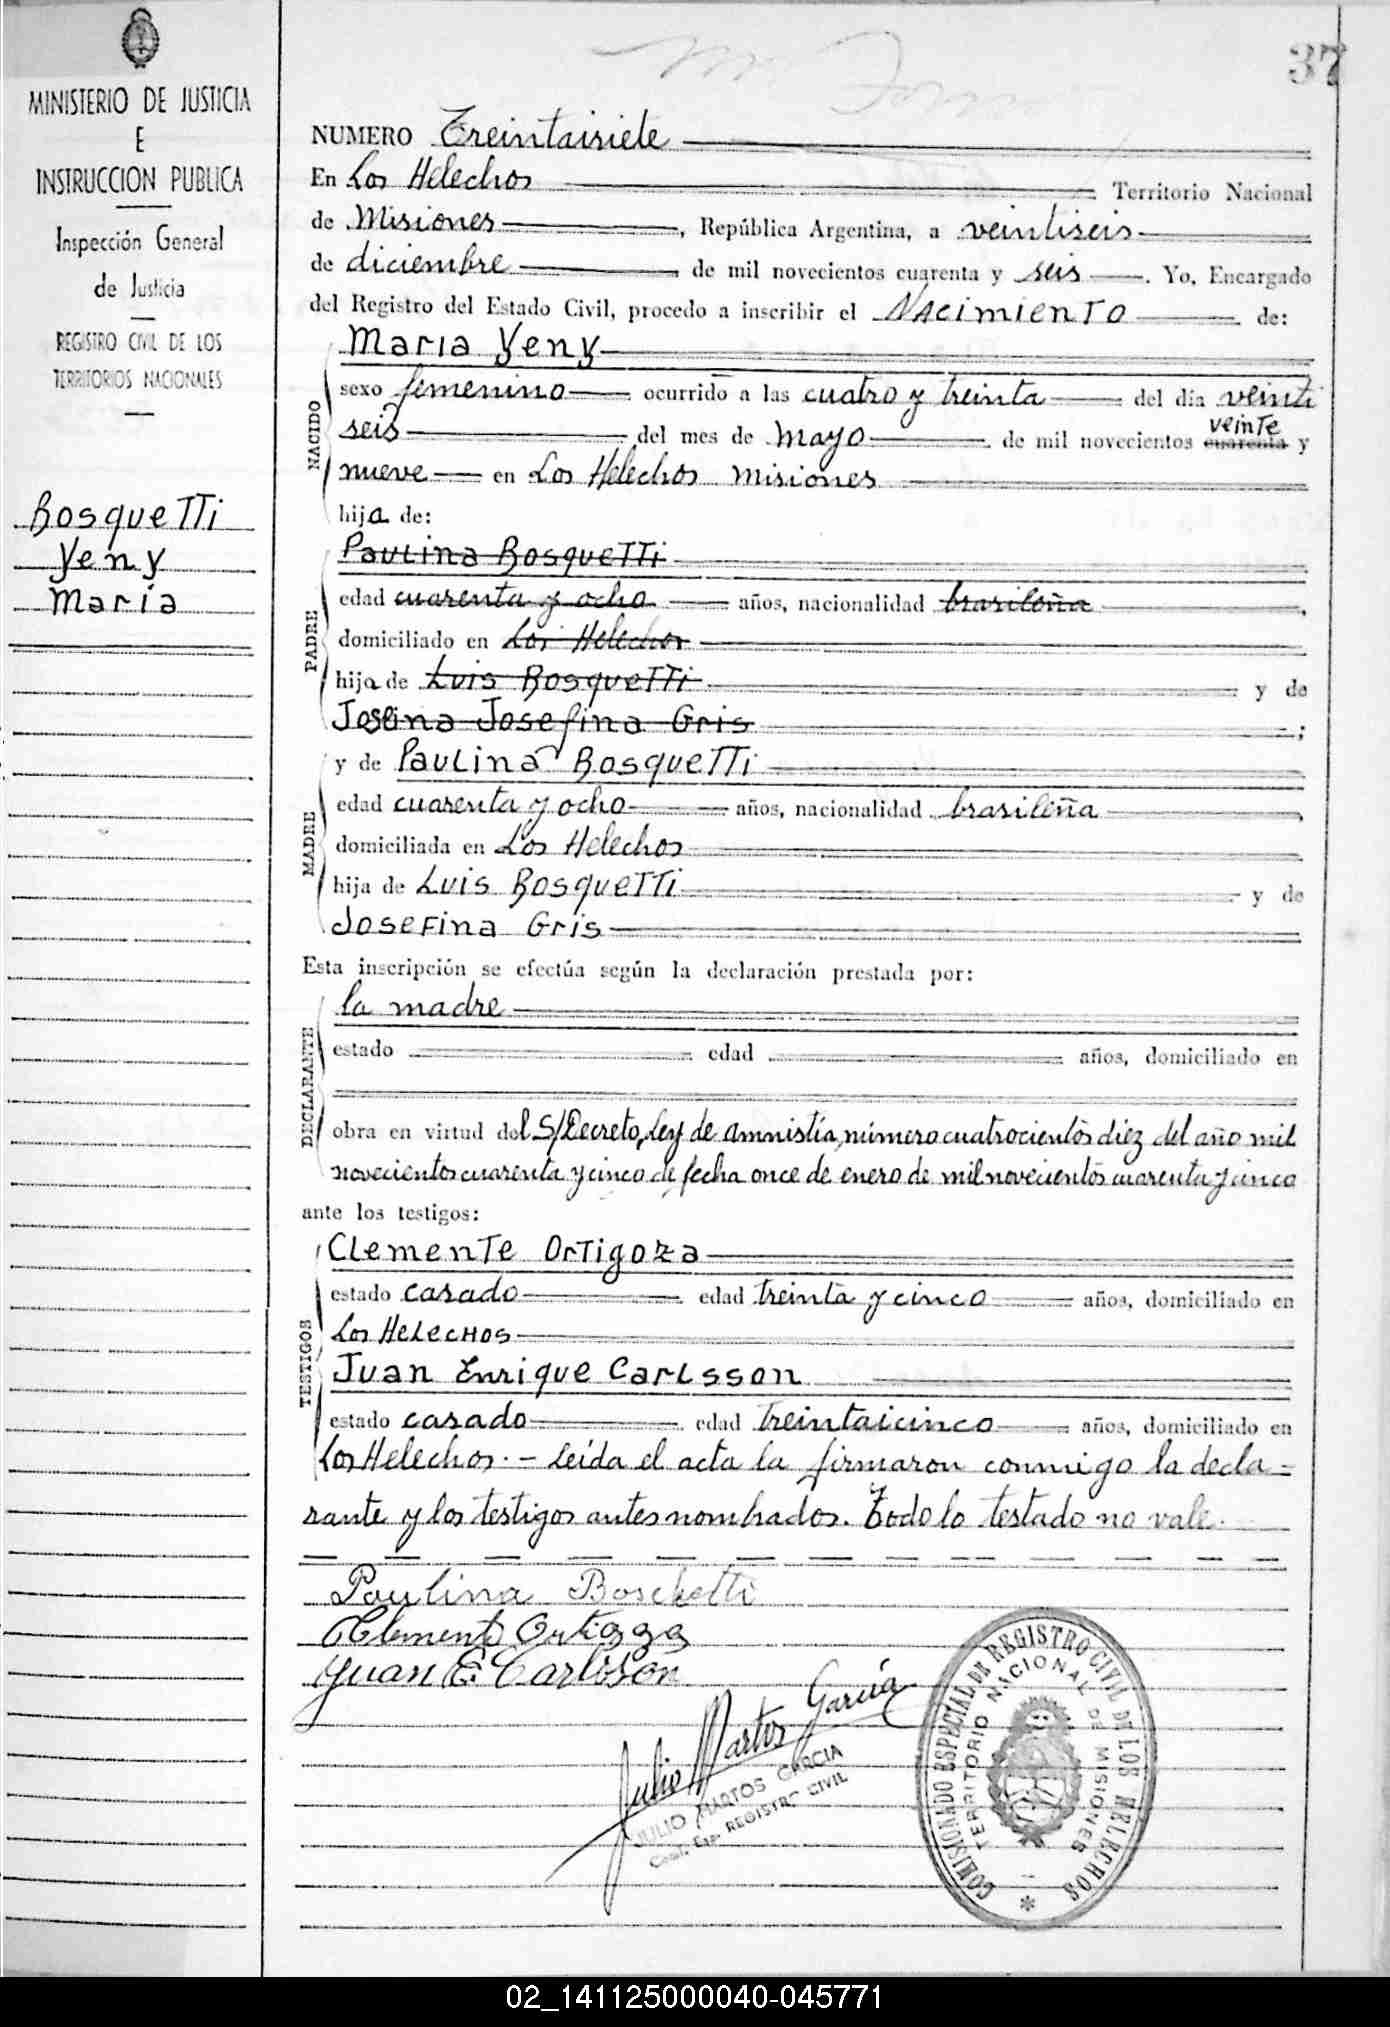 37
MINISTERIO DE JUSTICIA
E
INSTRUCCION PUBLICA
Inspección General
de Justicia
REGISTRO CIVIL DE LOS
TERRITORIOS NACIONALES
Bosquetti
Yeny
María
NUMERO Treintaisiete
En Los Helechos Territorio Nacional
de Misiones, República Argentina, a veintiseis
de diciembre de mil novecientos cuarenta y seis. Yo, Encargado
del Registro del Estado Civil, procedo a inscribir el Nacimiento de:
Maria Yeny
NACIDO
sexo femenino ocurrido a las cuatro y treinta del día veinti
seis del mes de Mayo de mil novecientos cuarenta veinte y
nueve en Los Helechos Misiones
hija de:
PADRE
Paulina Bosquetti
edad cuarenta y ocho años, nacionalidad brasileña,
domiciliado en Los Helechos
hija de Luis Bosquetti y de
Josefina Gris;
MADRE
y de Paulina Bosquetti
edad cuarenta y ocho años, nacionalidad brasileña,
domiciliada en Los Helechos
hija de Luis Bosquetti y de
Josefina Gris
Esta inscripción se efectúa según la declaración prestada por:
DECLARANTE
la madre
estado edad años, domiciliado en
obra en virtud del S/Decreto, Ley de amnistía, número cuatrocientos diez del año mil
novecientos cuarenta y cinco de fecha once de enero de mil novecientos cuarenta y cinco
ante los testigos:
TESTIGOS
Clemente Ortigoza
estado casado edad treinta y cinco años, domiciliado en
Los Helechos
Juan Enrique Carlsson
estado casado edad treintaicinco años, domiciliado en
Los Helechos.- Leída el acta la firmaron conmigo la decla=
rante y los testigos antes nombrados. Todo lo testado no vale.
Paulina Boschetti
Clemente Ortigoza
Juan E. Carlsson
Julio Martos García
JULIO MARTOS GARCIA
Com. Esp. REGISTRO CIVIL
COMISIONADO ESPECIAL DE REGISTRO CIVIL DE LOS HELECHOS
TERRITORIO NACIONAL DE MISIONES
02_141125000040-045771